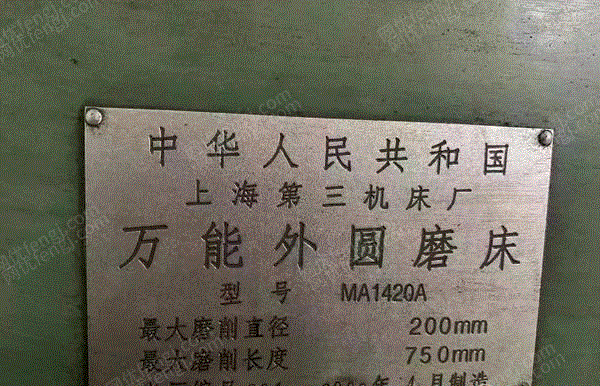 中华人民共和国
上海第三机床厂
万能外圆磨床
型号 MA1420A
最大磨削直径 200mm
最大磨削长度 750mm
年4月制造